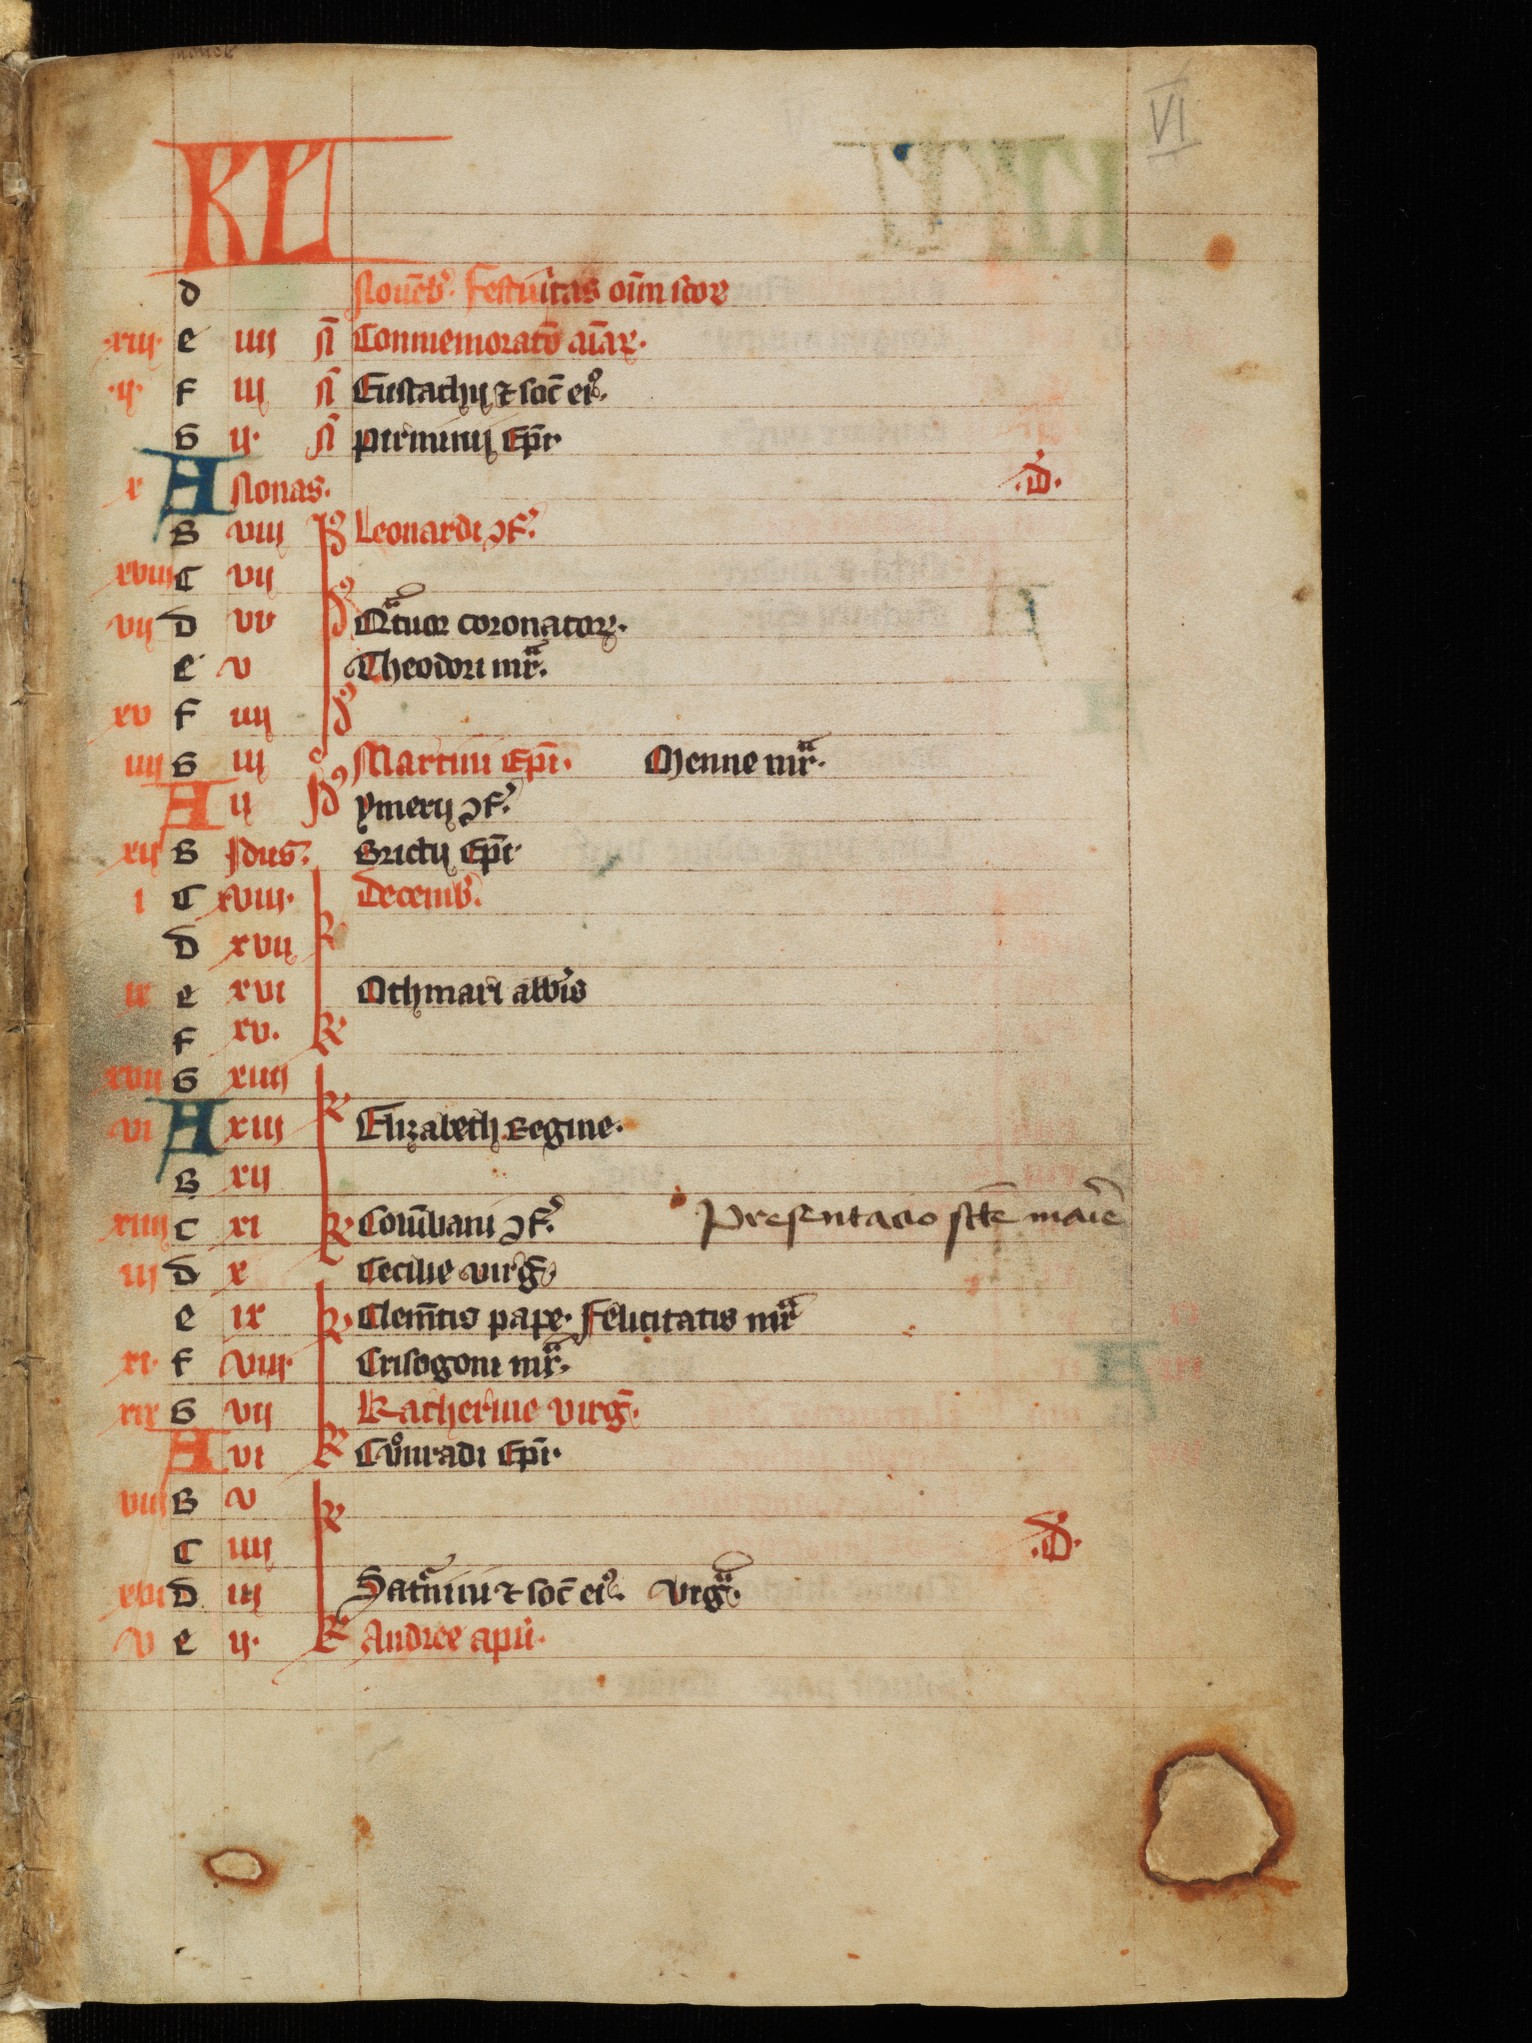 VI
KL
d Nouēb᷑. Festiuitas oīm scōꝝ
xiii. e iiii N̄ Conmemoratō aīaꝝ.
.ii. f iii N̄ Eustachii ⁊ soc̄ eiꝰ.
g ii. N̄ pirminii Epī.
x A Nonas. .D̕.
b viii Idꝰ Leonardi ɔf̕.
xviii c vii
vii d vi Idꝰ Qᷓtuor coronatoꝝ.
e v Theodori mr̄.
xv f iiii Idꝰ
iiii g iii Martini Epī. Menne mr̄.
A ii Idꝰ ymerii ɔf̕.
xii b Idus. Brictii Epī.
i c xviii. Decemb᷑.
d xvii K
ix e xvi Othmari abb̕is
f xv. K
xvii g xiiii
vi A xiii K Elizabeth Regine.
b xii
xiiii c xi K Coluᷠbani ɔf̕. Presentacio scte marie
iii d x Cecilie virḡ
e ix K Clemētis pape. Felicitatis mr̄
xi. f viii. Crisogoni mr̄.
xix g vii Katherine virḡ.
A vi K Cuͦnradi Epī.
viii b v K
c iiii .D̕.
xvi d iii Sat᷑nini ⁊ soc̄ eiꝰ. vigᷓ.
v e ii. K Andree apłi.